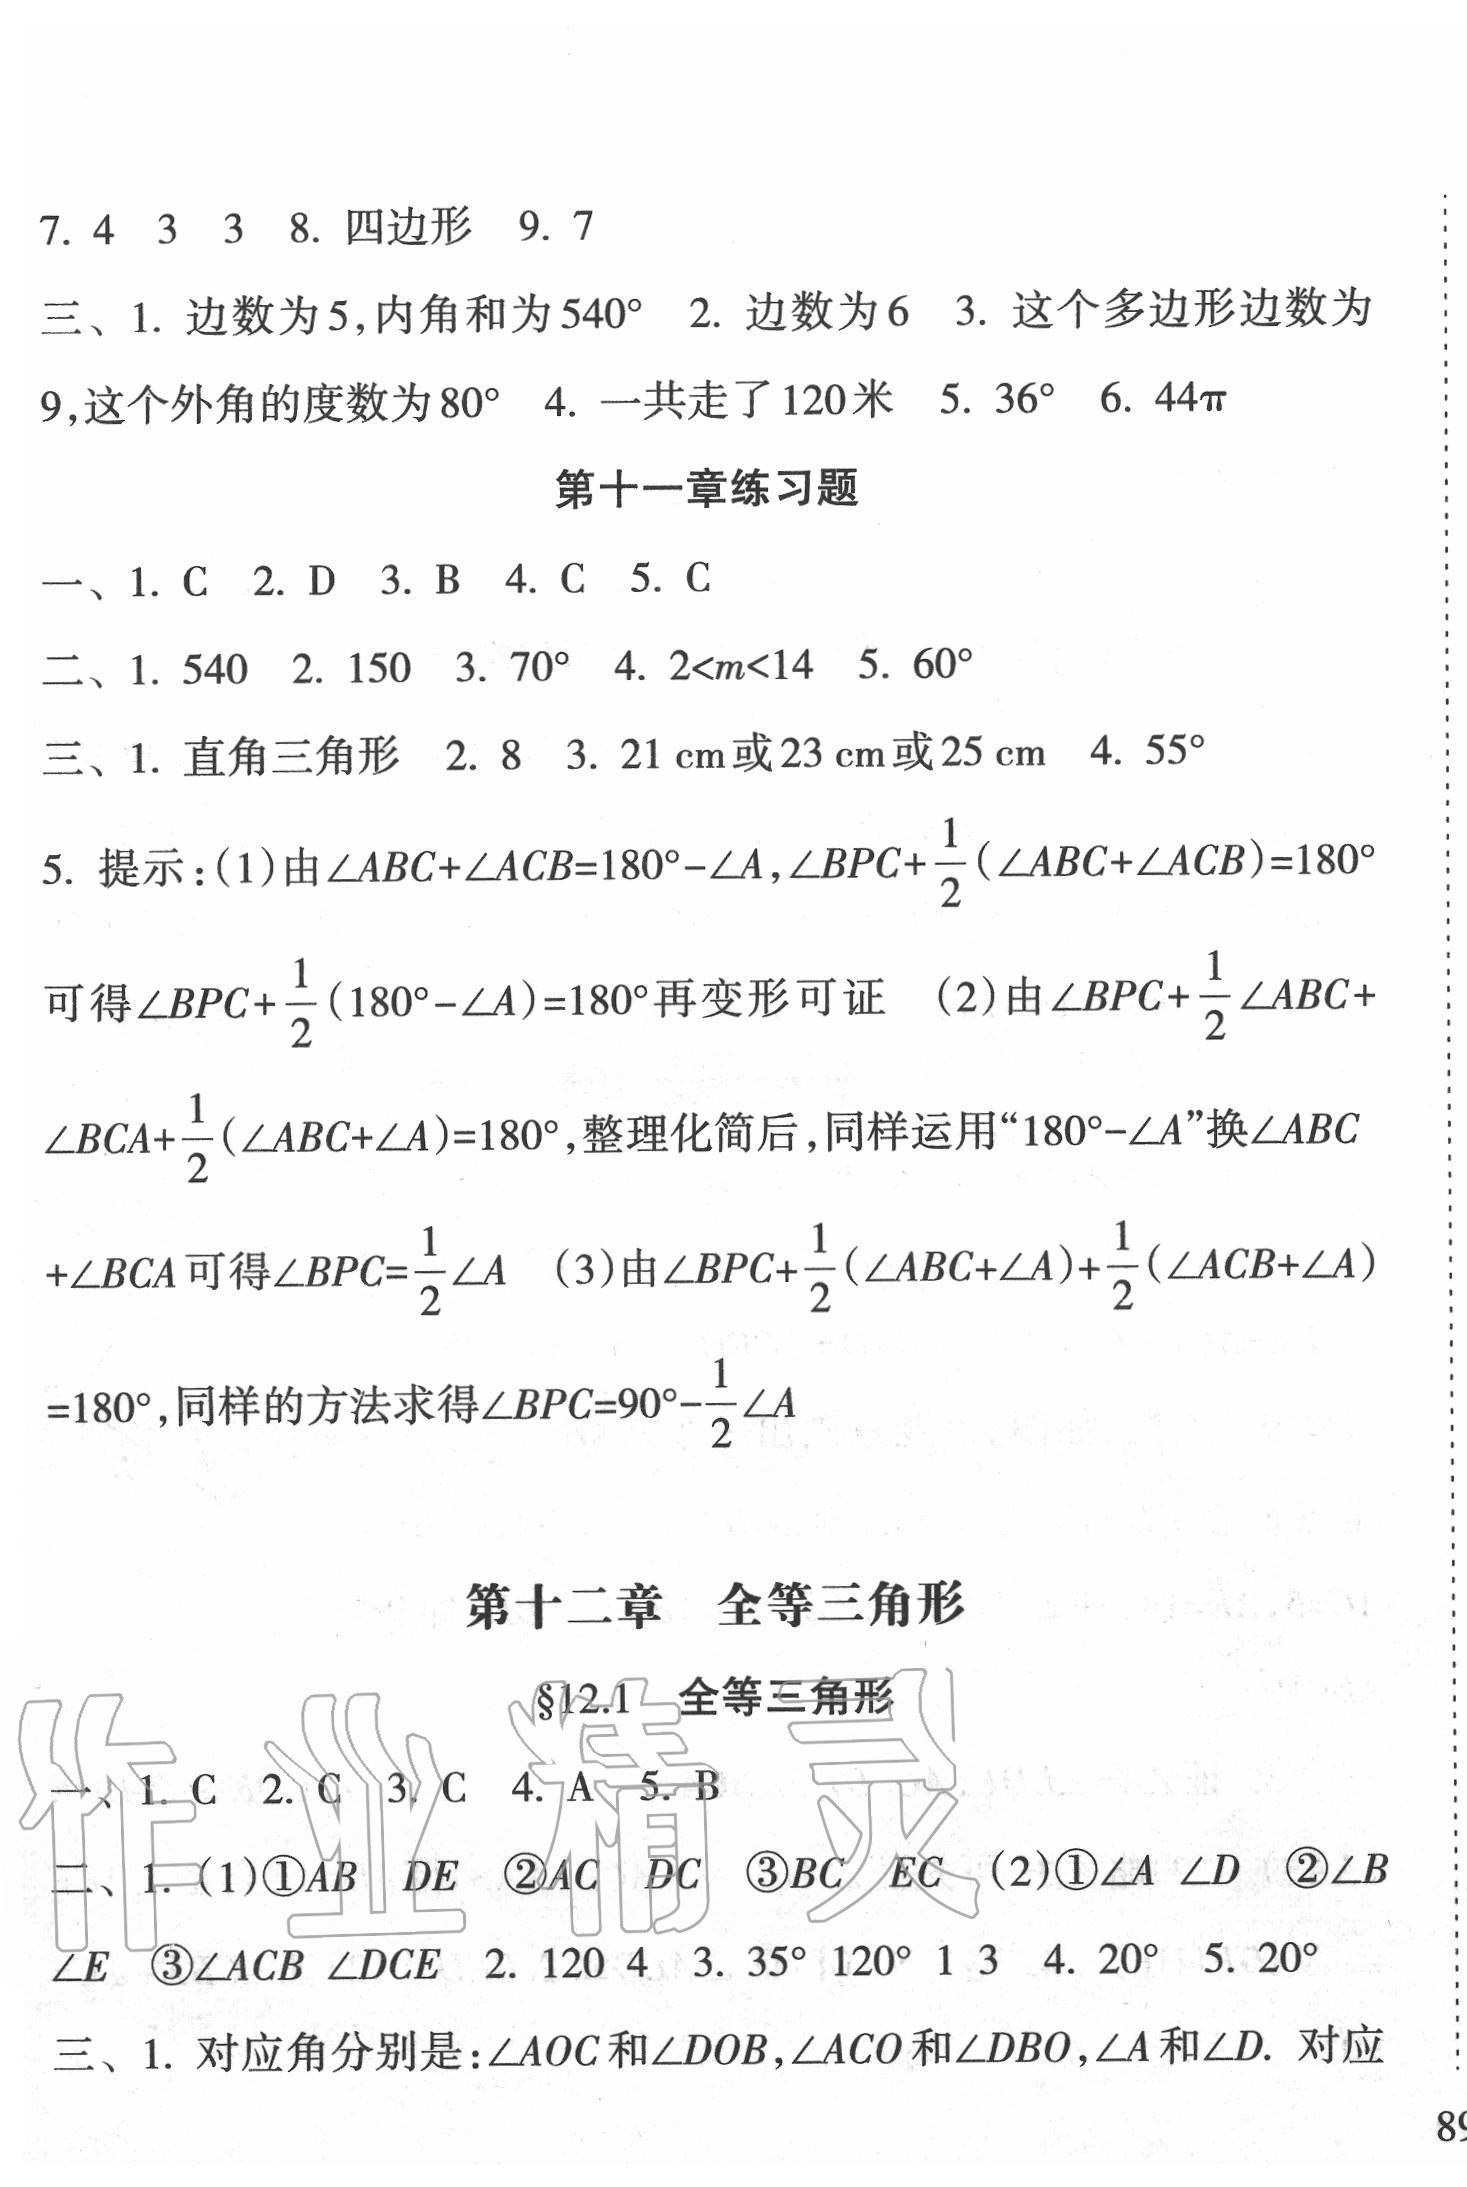 7. 4 3 3 8. 四边形 9. 7
三、1. 边数为5,内角和为540° 2. 边数为6 3. 这个多边形边数为
9,这个外角的度数为80° 4. 一共走了120米 5. 36° 6. 44π
第十一章练习题
一、1. C 2. D 3. B 4. C 5. C
二、1. 540 2. 150 3. 70° 4. 2<m<14 5. 60°
三、1. 直角三角形 2. 8 3. 21 cm或23 cm或25 cm 4. 55°
5. 提示:(1)由∠ABC+∠ACB=180°-∠A,∠BPC+1/2(∠ABC+∠ACB)=180°
可得∠BPC+1/2(180°-∠A)=180°再变形可证 (2)由∠BPC+1/2∠ABC+
∠BCA+1/2(∠ABC+∠A)=180°,整理化简后,同样运用“180°-∠A”换∠ABC
+∠BCA可得∠BPC=1/2∠A (3)由∠BPC+1/2(∠ABC+∠A)+1/2(∠ACB+∠A)
=180°,同样的方法求得∠BPC=90°-1/2∠A
第十二章 全等三角形
§12.1 全等三角形
一、1. C 2. C 3. C 4. A 5. B
二、1. (1)①AB DE ②AC DC ③BC EC (2)①∠A ∠D ②∠B
∠E ③∠ACB ∠DCE 2. 120 4 3. 35° 120° 1 3 4. 20° 5. 20°
三、1. 对应角分别是:∠AOC和∠DOB,∠ACO和∠DBO,∠A和∠D. 对应
89
作业精灵